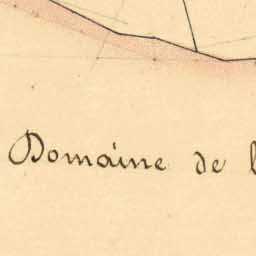 Domaine de l